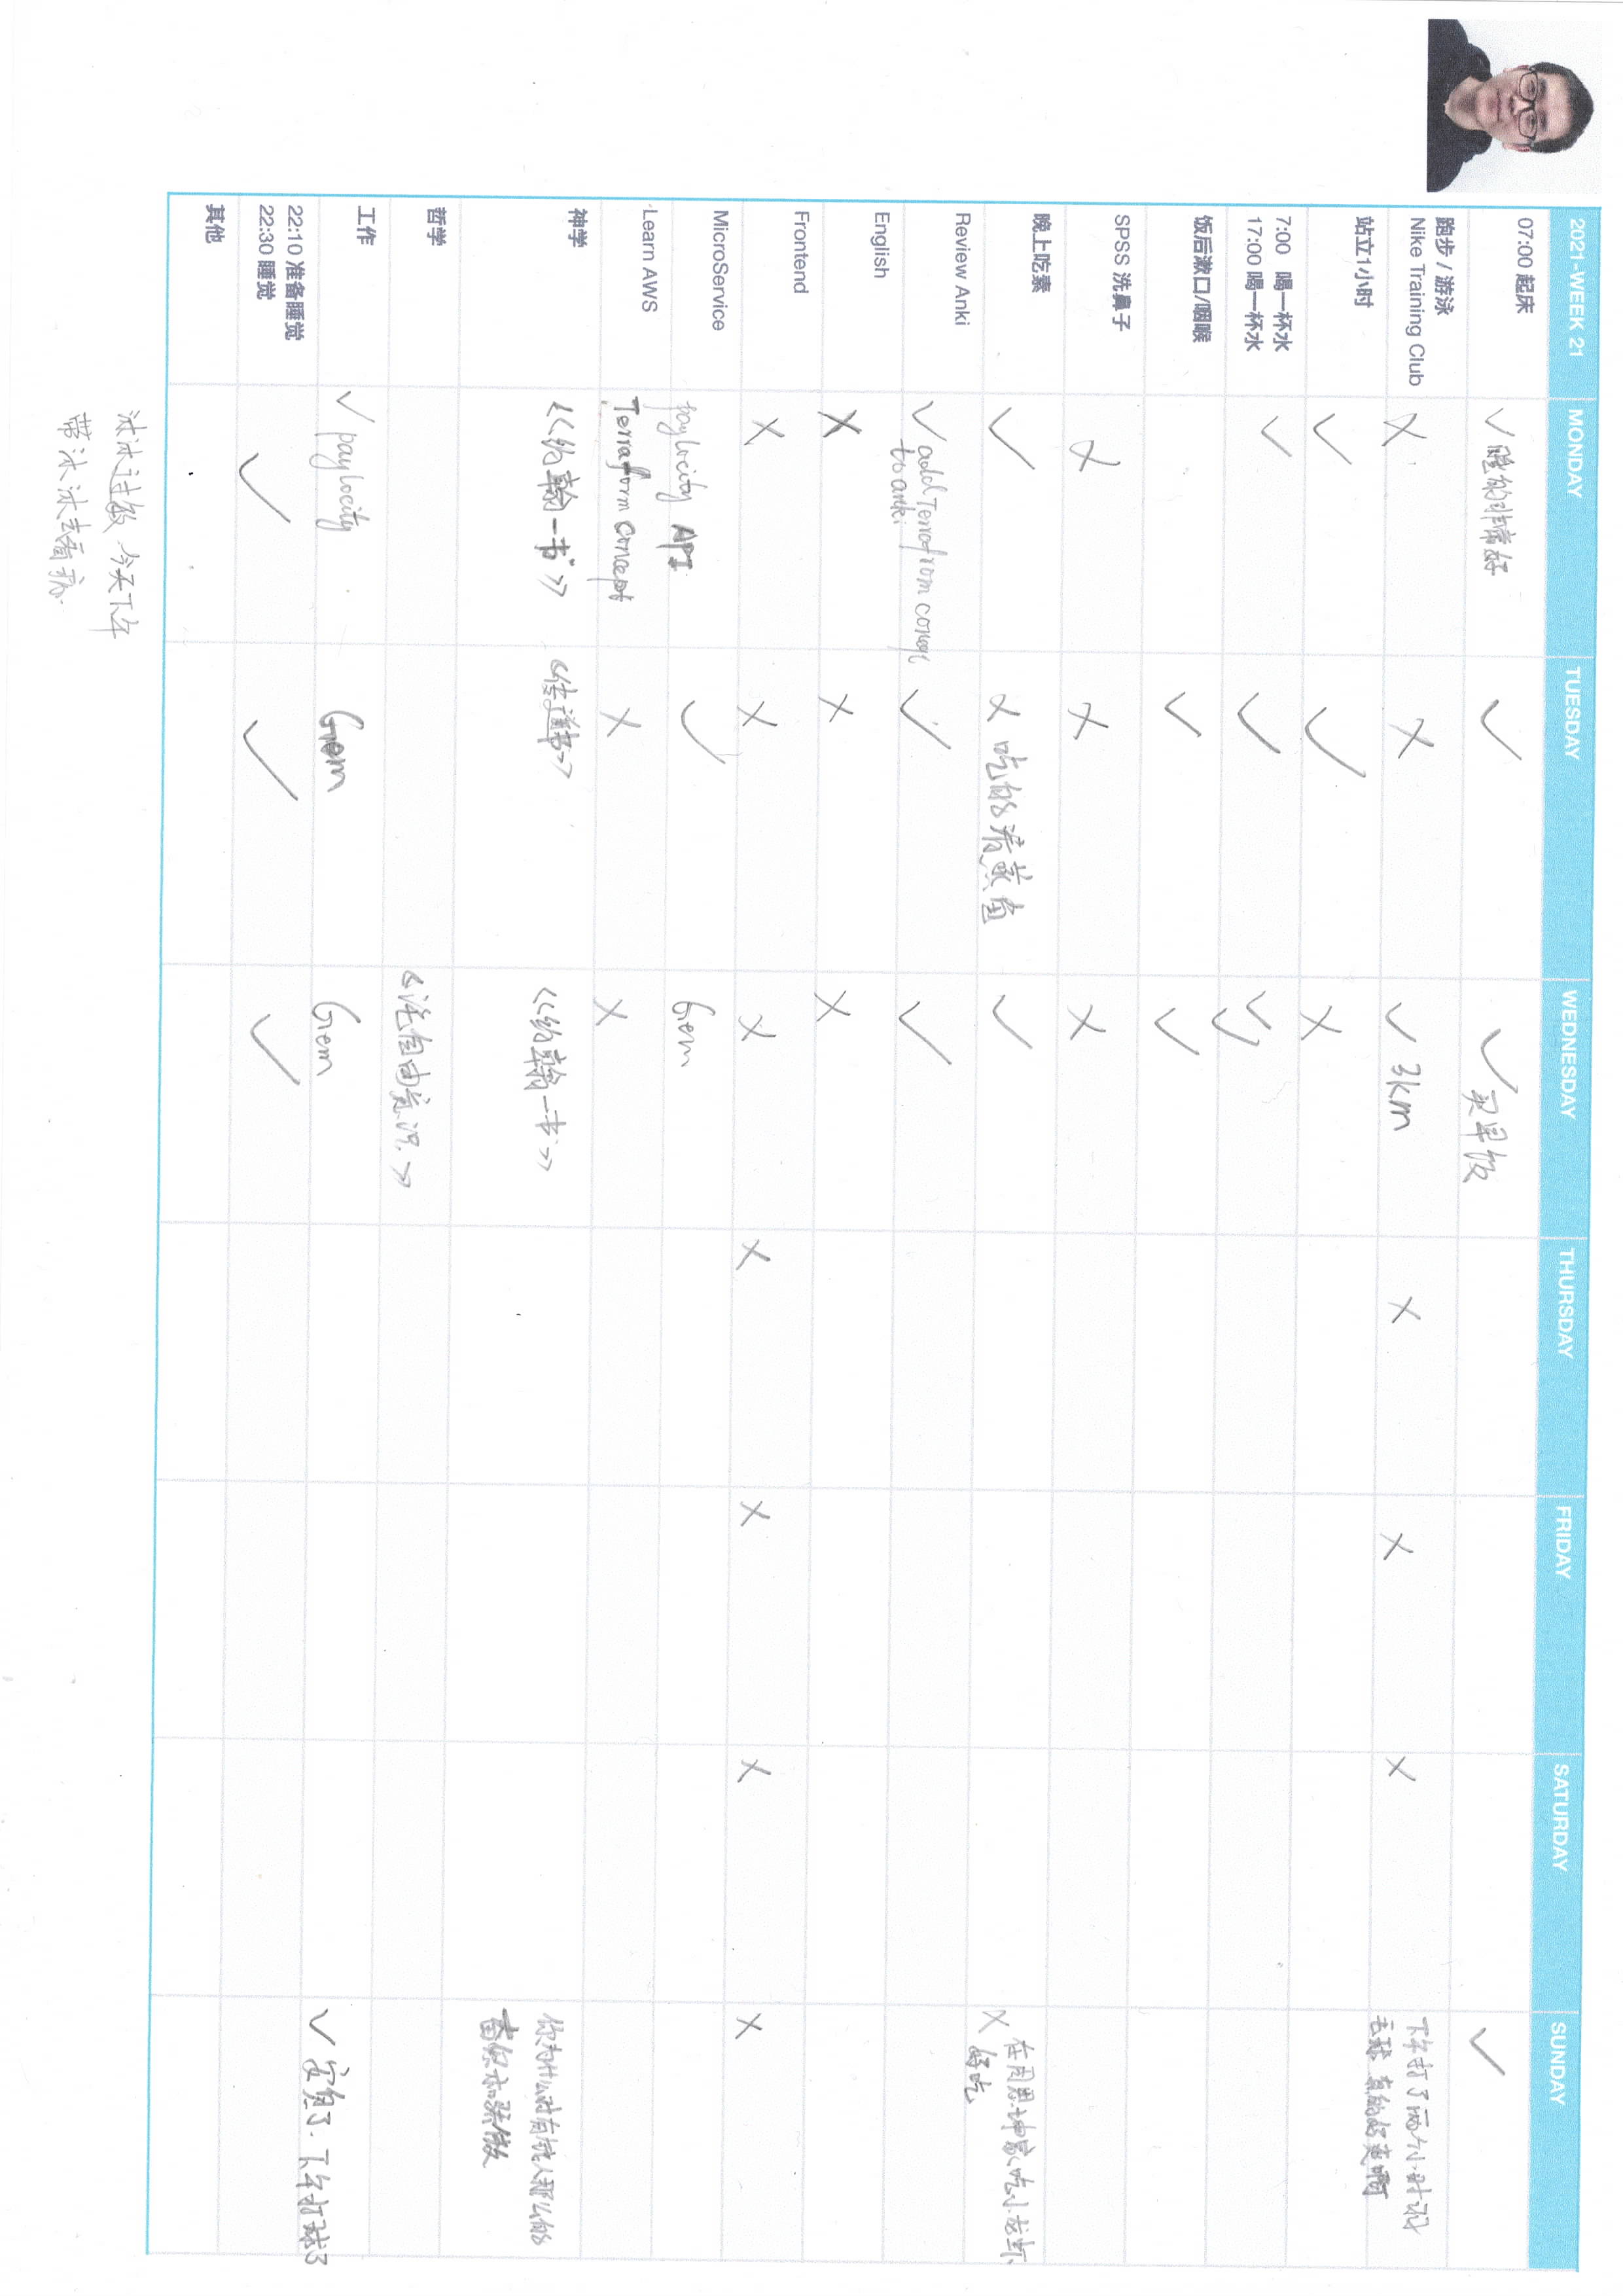 2021-WEEK 21 MONDAY TUESDAY WEDNESDAY THURSDAY FRIDAY SATURDAY SUNDAY
07:00 起床
✓ 睡的非常好 ✓ ✓ 买早饭 ✓
跑步 / 游泳
Nike Training Club
X X ✓ 3km X X X 下午打了两个小时羽
毛球 真的好爽啊
站立1小时
✓ ✓ X
7:00 喝一杯水
17:00 喝一杯水
✓ ✓ ✓ ✓
饭后漱口/咽喉
✓ ✓
SPSS 洗鼻子
X X X
晚上吃素
✓ X 吃的清蒸鱼 ✓ X 在周思坤家吃小龙虾
好吃
Review Anki
✓ add Terrafrom concept ✓ ✓
to anki
English
X X X
Frontend
X X X X X X X
MicroService
paylocity API ✓ Gem
Learn AWS
Terraform concept X X
神学
<<约翰一书>> <<传道书>> <<约翰一书>> 你为什么对有钱人那么的
和骄傲
哲学
自由意识>>
工作
✓ paylocity Gem Gem ✓ 安息了. 下午打球了
22:10 准备睡觉
22:30 睡觉
✓ ✓ ✓
其他
冰冰过敏 今天下午
带冰冰去看病.